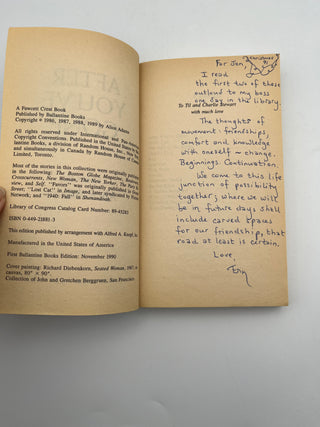 A Fawcett Crest Book
Published by Ballantine Books
Copyright © 1980, 1987, 1988, 1989 by Alice Adams
All rights reserved under International and Pan-American
Copyright Conventions. Published in the United States
by Ballantine Books, a division of Random House, Inc., New York,
and simultaneously in Canada by Random House of Canada
Limited, Toronto.
Most of the stories in this collection were originally published
in the following: The Boston Globe Magazine,
Crosscurrents, New Woman, The New Yorker, The Paris
Review, and Self. "Favors" was originally published in
"Lost Cat" in Image, and later syndicated by Fiction
Network, and "1940: Fall" in Shenandoah.
Library of Congress Catalog Card Number: 89-45283
ISBN 0-449-21881-5
This edition published by arrangement with Alfred A. Knopf, Inc.
Manufactured in the United States of America
First Ballantine Books Edition: November 1990
Cover painting: Richard Diebenkorn, Seated Woman, 1967, on
canvas, 80" x 90"
Collection of John and Gretchen Berggruen, San Francisco
AFTER
YOU'VE
For Jen,
Christmas
I read
the first two of these
outloud to my boss
To Pil and Charlie Stewart
one day in the library.
with much love
The thoughts of
movement: friendships,
comfort and knowledge
with oneself ~ change.
Beginnings. Continuation.
We come to this life
junction of possibility
together; where we will
be in future days shall
include carved spaces
for our friendship, that
road at least is certain.
Love,
Erin